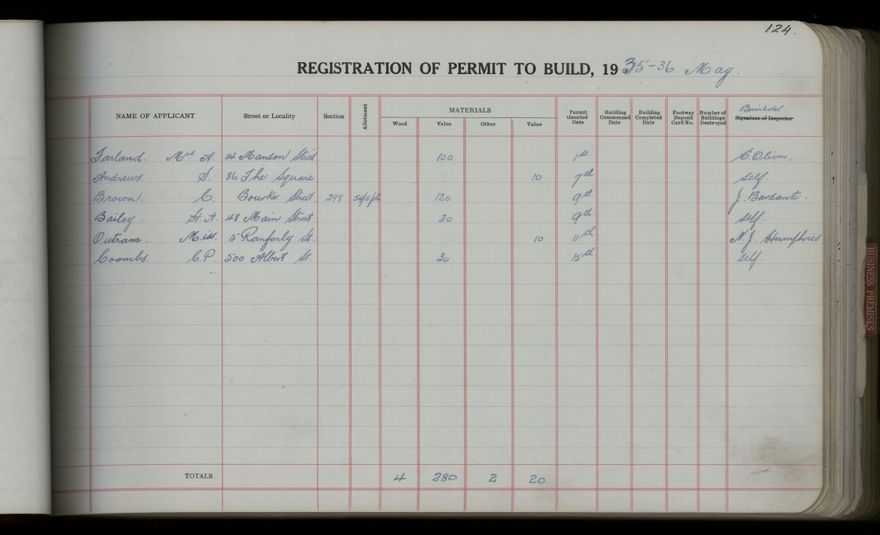 124.
REGISTRATION OF PERMIT TO BUILD, 1935-36 May.
NAME OF APPLICANT Street or Locality Section Allotment MATERIALS Wood Value Other Value Permit Granted Date Building Commenced Date Building Completed Date Footway Deposit Card No. Number of Buildings Destroyed Builder. Signature of Inspector
Farland. A. 14 Manson Street 100 1st E Oliver.
Andrews. S. 86 The Square 10 7th self.
Brown. C. Bourke Street 298 120 9th J. Bardanti.
Bailey. H. A. 48 Main Street 30 9th self.
Outram. Miss. 5 Ranfurly St. 10 11th N. J. Humphries
Coombs. C. P. 500 Albert St 30 self.
TOTALS 4 280 2 20
BUSINESS PREMISES